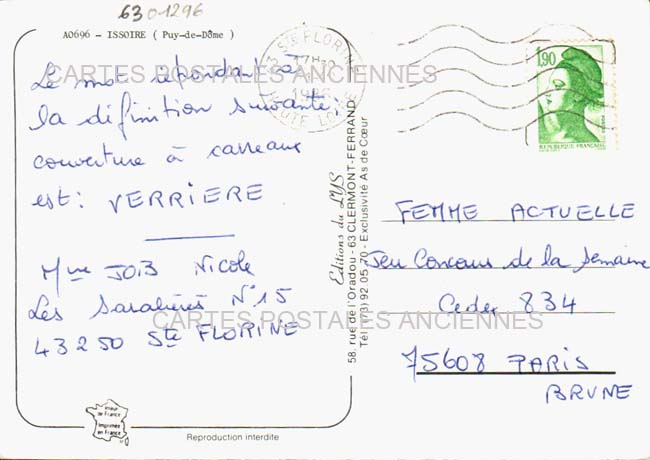 63 01296
A0696 - ISSOIRE ( Puy-de-Dôme )
Le mot répondant à
la définition suivante :
couverture à carreaux
est : VERRIERE
Mme JOB Nicole
Les Saralières N° 15
43250 Ste FLORINE
CARTES POSTALES ANCIENNES
CARTES POSTALES ANCIENNES
Editions du LYS
58, rue de l'Oradou - 63 CLERMONT-FERRAND
Tél. (73) 92.05.70 - Exclusivité As de Cœur
STE FLORINE
17H
HAUTE LOIRE
1,90
REPUBLIQUE FRANÇAISE
FEMME ACTUELLE
Jeu Concours de la Semaine
Cedex 834
75608 PARIS
BRUNE
Imprimée
en France
Reproduction interdite